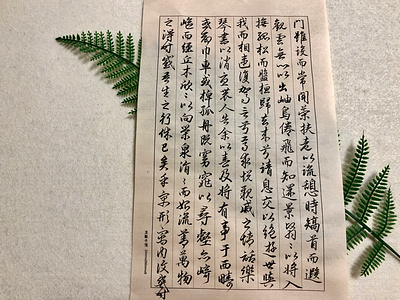 門雖設而常關策扶老以流憩時矯首而遐
觀雲無心以出岫鳥倦飛而知還景翳〻以將入
撫孤松而盤桓歸去來兮請息交以絕遊世與
我而相遺復駕言兮焉求悅親戚之情話樂
琴書以消憂農人告余以春及將有事于西疇
或命巾車或棹孤舟既窈窕以尋壑亦崎
嶇而經丘木欣〻以向榮泉涓〻而始流善萬物
之得時感吾生之行休已矣乎寓形宇內復幾時